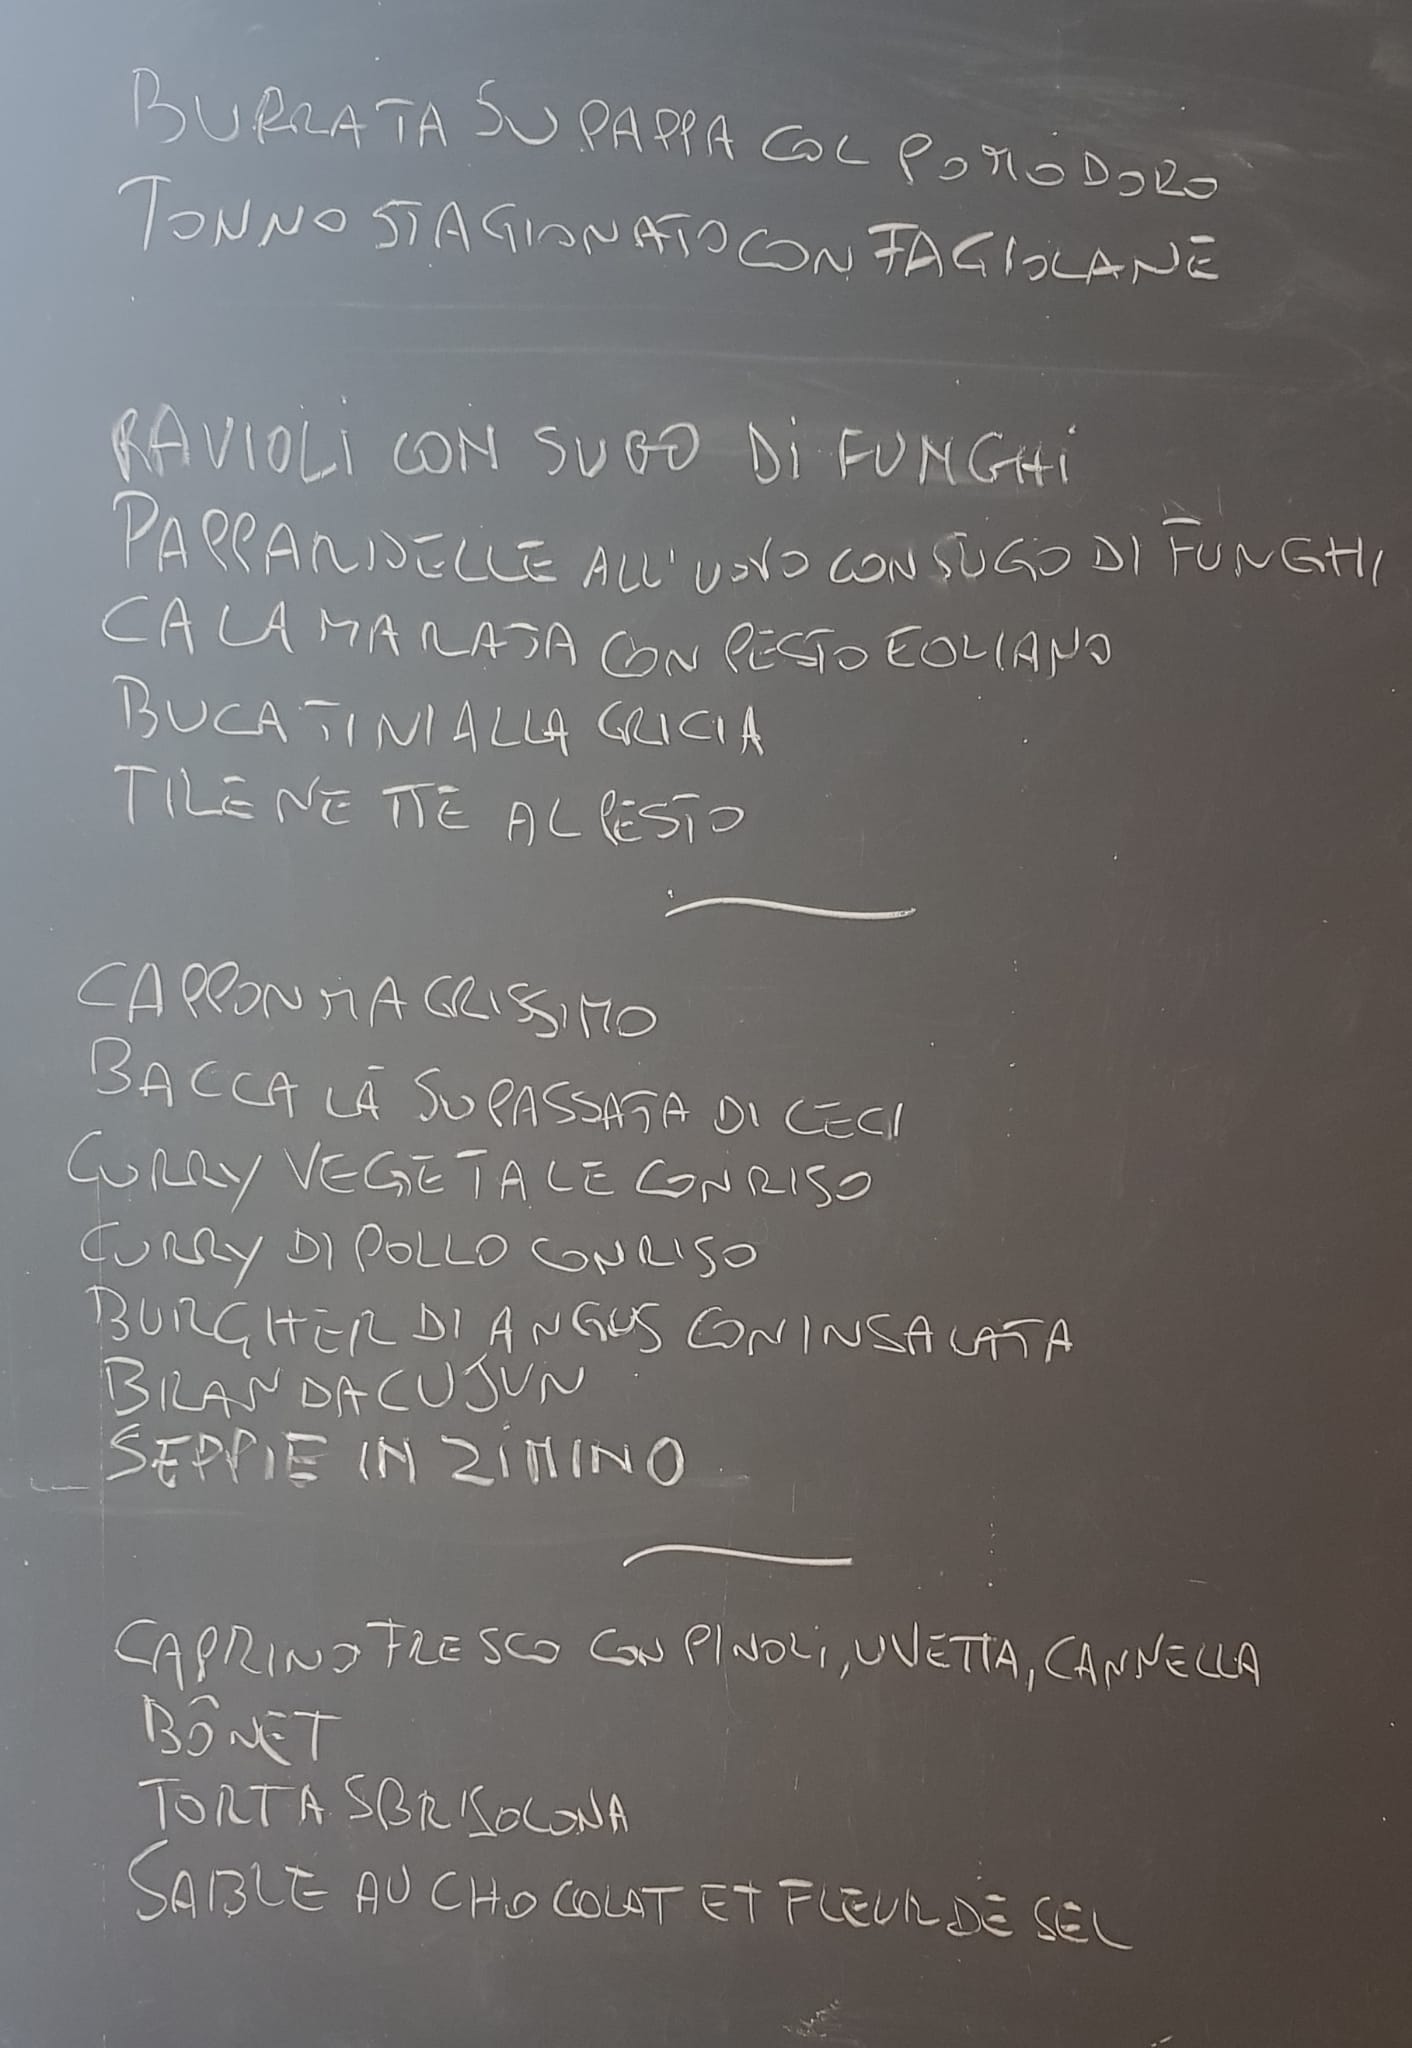 BURRATA SU PAPPA COL POMODORO
TONNO STAGIONATO CON FAGIOLANE
RAVIOLI CON SUGO DI FUNGHI
PAPPARDELLE ALL'UOVO CON SUGO DI FUNGHI
CALAMARATA CON PESTO EOLIANO
BUCATINI ALLA GRICIA
TRENETTE AL PESTO
CAPPON MAGRISSIMO
BACCALÀ SU PASSATA DI CECI
CURRY VEGETALE CON RISO
CURRY DI POLLO CON RISO
BURGHER DI ANGUS CON INSALATA
BRANDACUJUN
SEPPIE IN ZIMINO
CAPRINO FRESCO CON PINOLI, UVETTA, CANNELLA
BÔNET
TORTA SBRISOLONA
SABLE AU CHOCOLAT ET FLEUR DE SEL